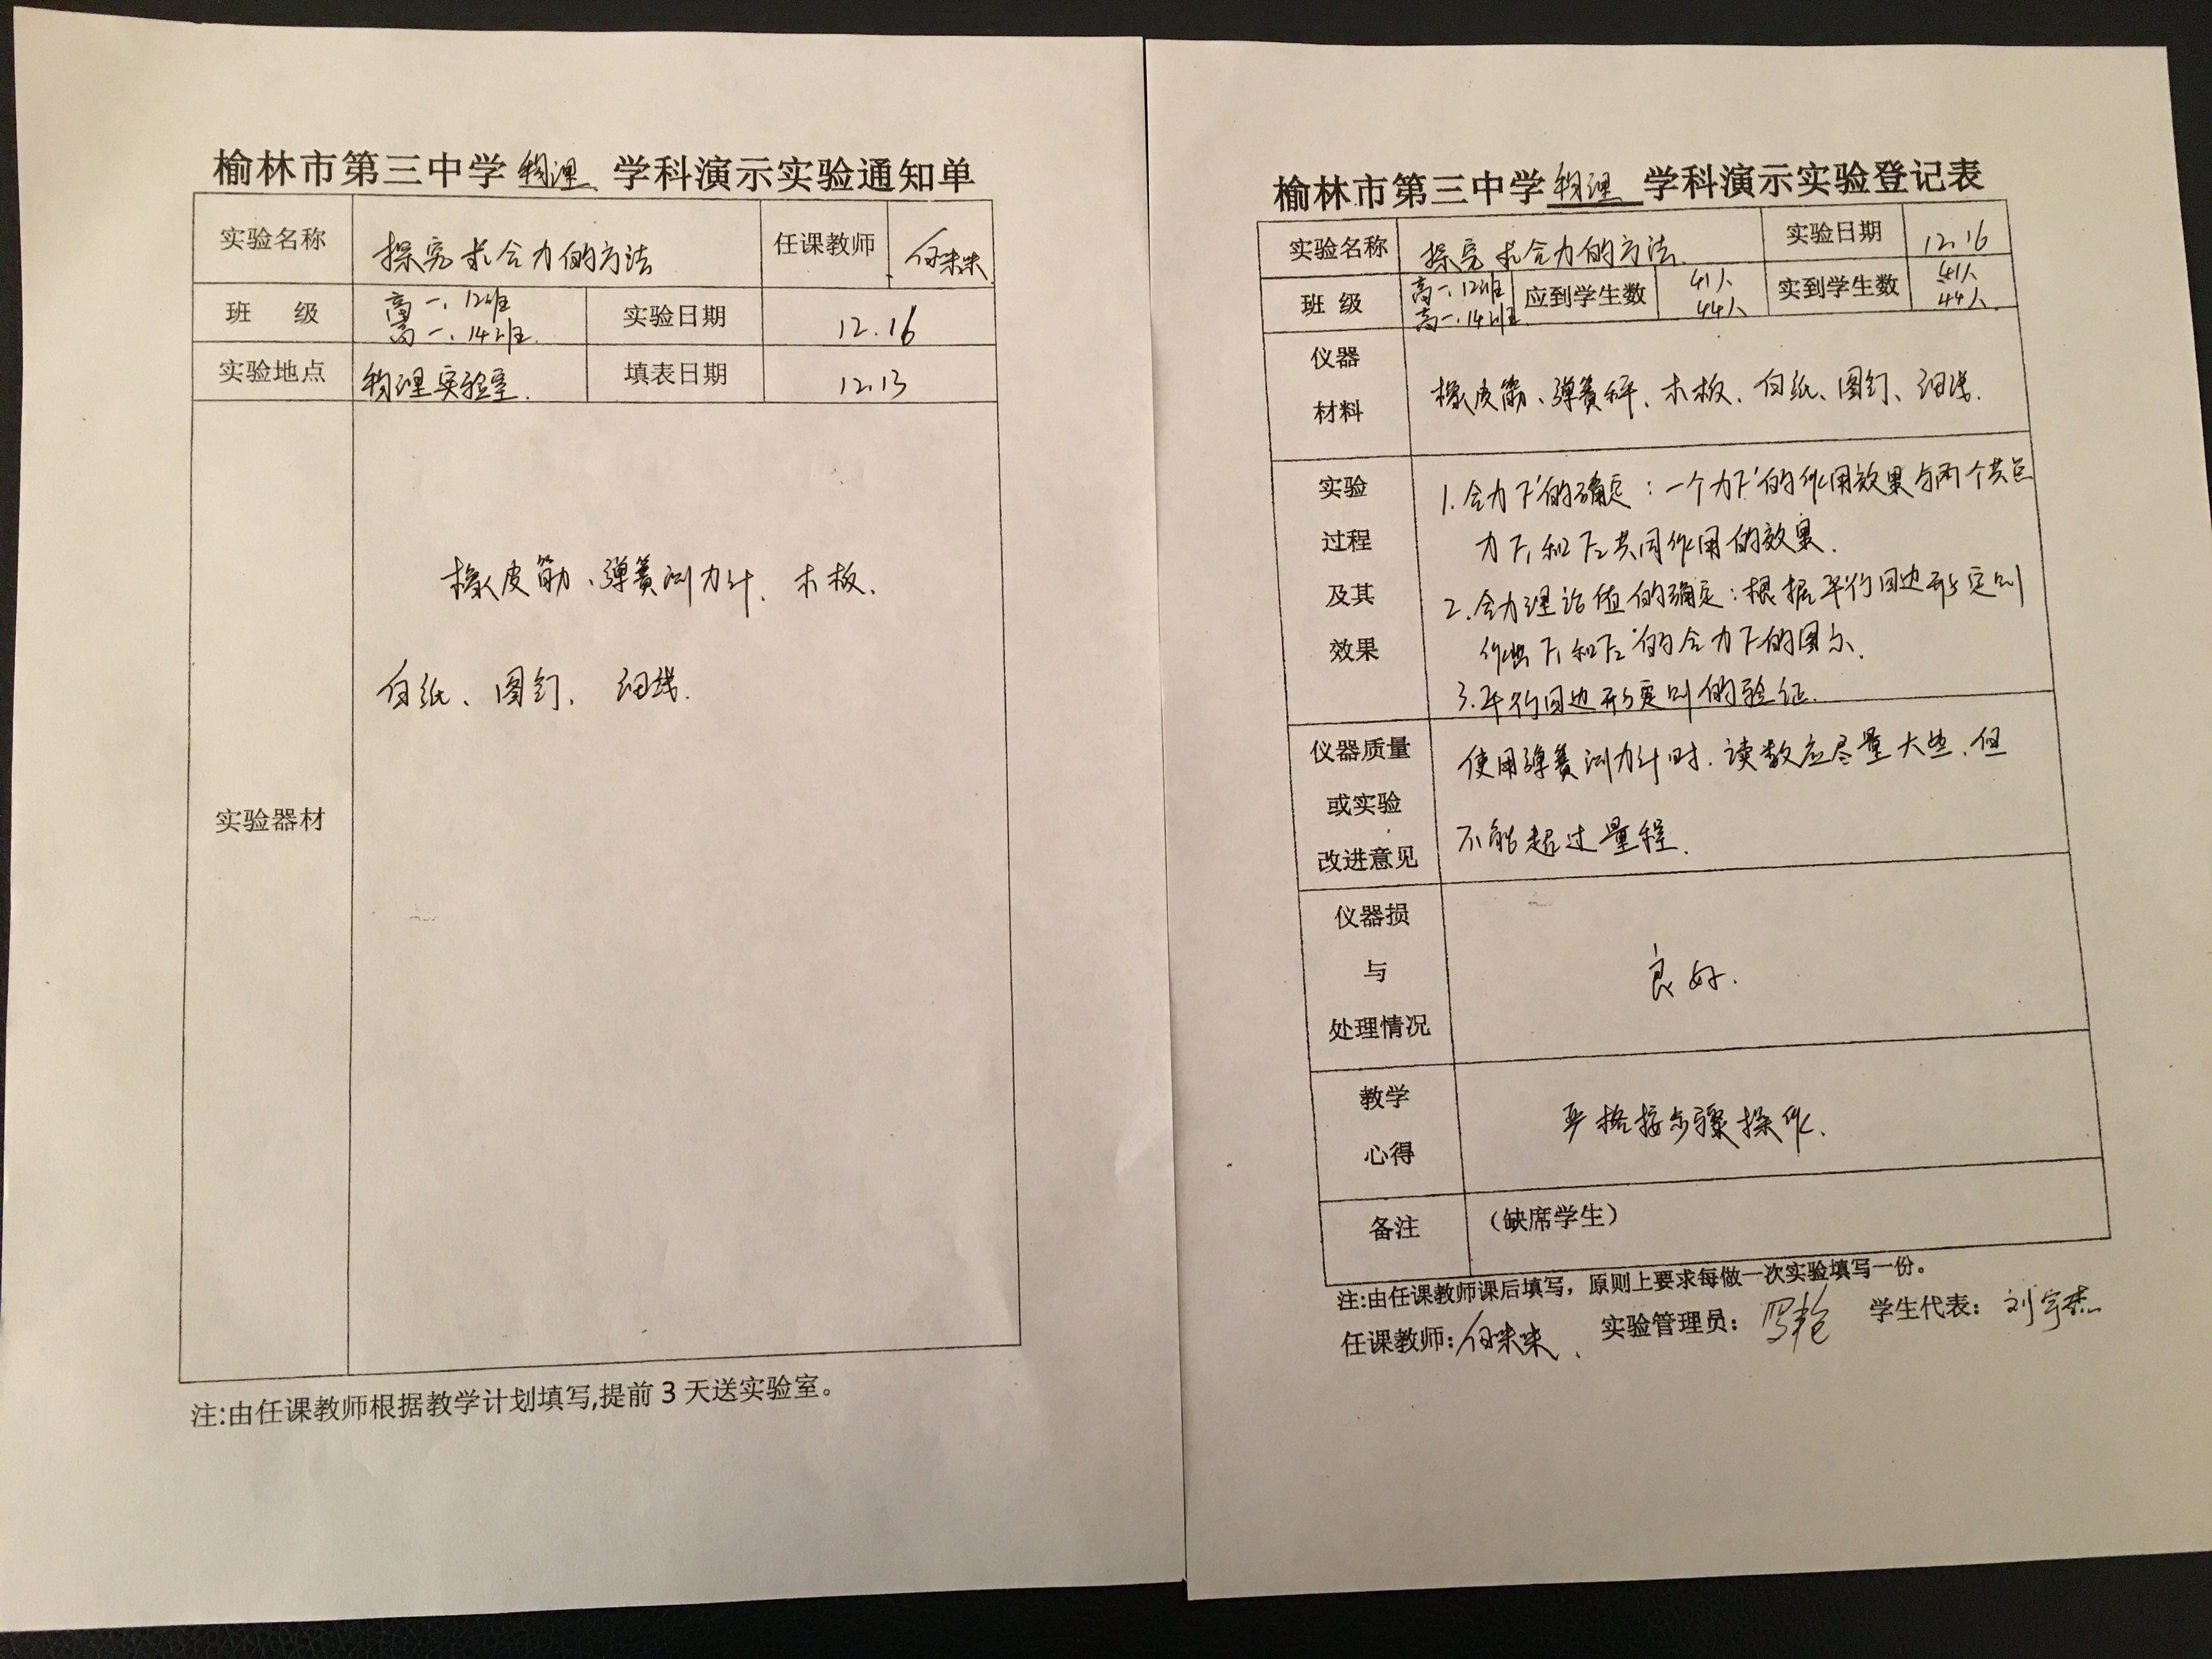 榆林市第三中学 物理 学科演示实验通知单
实验名称 探究求合力的方法 任课教师
班 级 高一.12班 高一.14班. 实验日期 12.16
实验地点 物理实验室. 填表日期 12.13
实验器材
橡皮筋、弹簧测力计、木板.
白纸、图钉、细线.
注:由任课教师根据教学计划填写,提前3天送实验室。
榆林市第三中学 物理 学科演示实验登记表
实验名称 探究求合力的方法. 实验日期 12.16
班 级 高一.12班 高一.14班. 应到学生数 41人 44人 实到学生数 41人 44人.
仪器
材料
橡皮筋、弹簧秤、木板、白纸、图钉、细线.
实验
过程
及其
效果
1.合力F'的确定：一个力F'的作用效果与两个共点
力F₁和F₂共同作用的效果.
2.合力理论值的确定：根据平行四边形定则
作出F₁和F₂的合力F的图示.
3.平行四边形定则的验证.
仪器质量
或实验
改进意见
使用弹簧测力计时.读数应尽量大些.但
不能超过量程.
仪器损
与
处理情况
良好.
教学
心得
严格按步骤操作.
备注 （缺席学生）
注:由任课教师课后填写，原则上要求每做一次实验填写一份。
任课教师: 实验管理员： 学生代表：刘宇杰